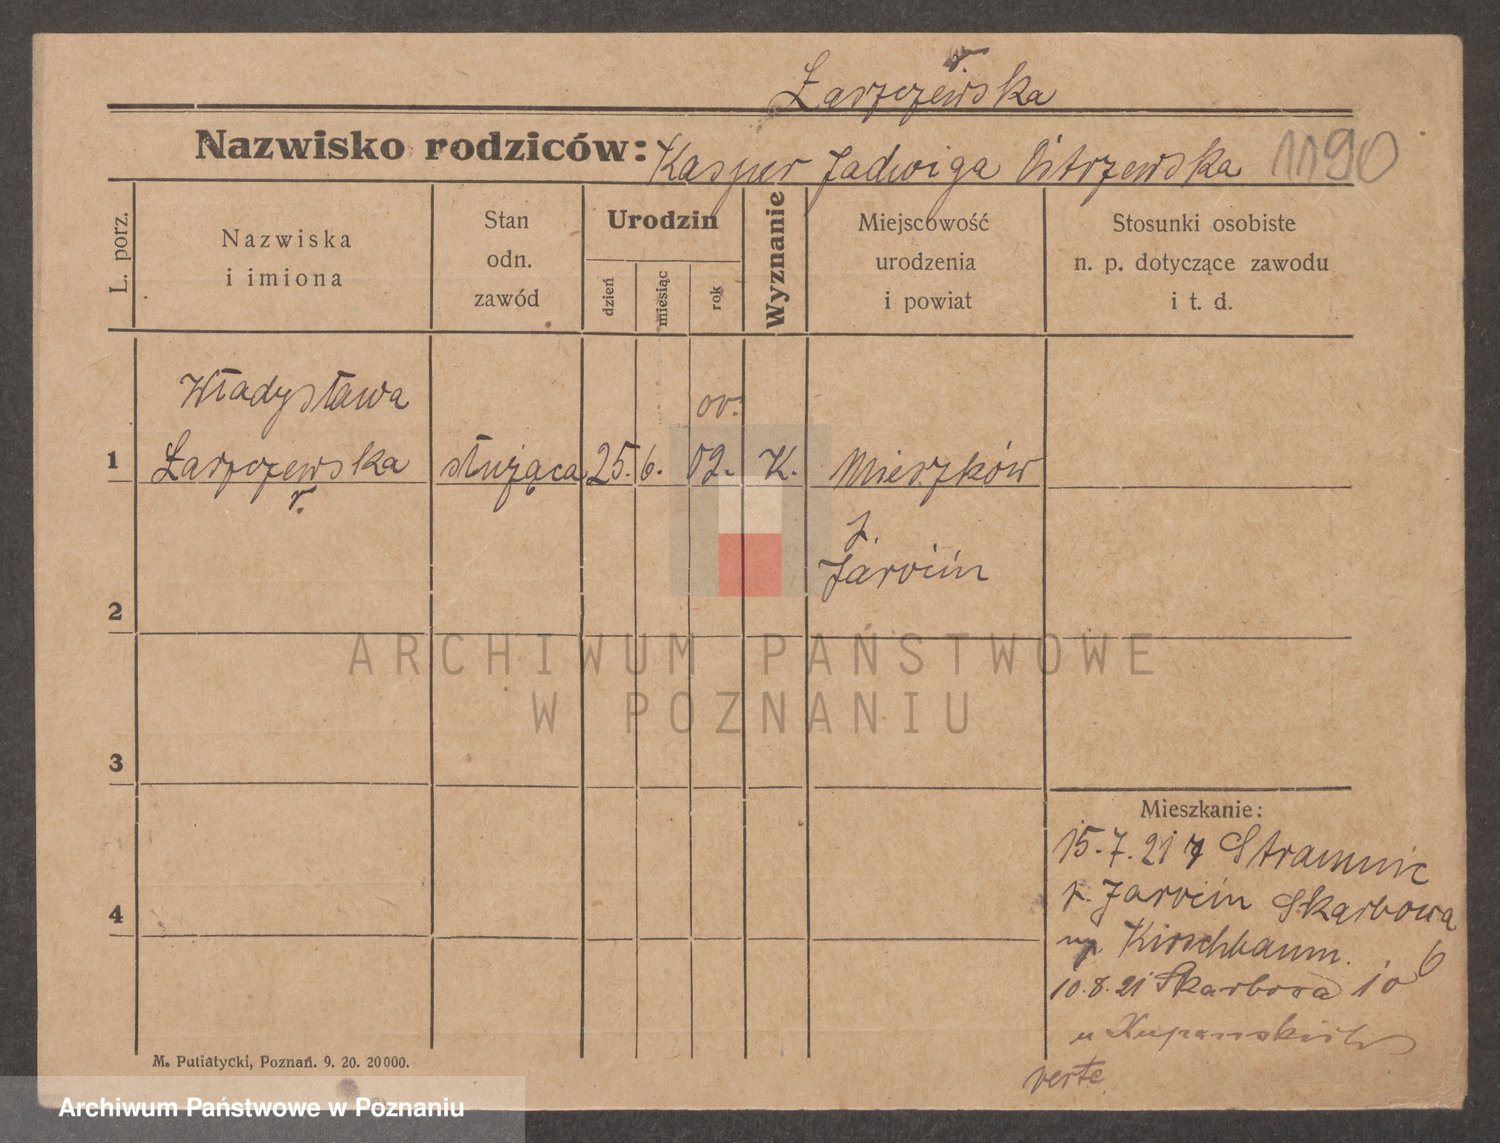 Łaszczewska
Nazwisko rodziców: Kasper Jadwiga Ostrzewska 1190
L. porz.
Nazwiska
i imiona
Stan
odn.
zawód
Urodzin
dzień
miesiąc
rok
Wyznanie
Miejscowość
urodzenia
i powiat
Stosunki osobiste
n. p. dotyczące zawodu
i t. d.
Władysława
1 służąca 25. 6. 02. K. Mieszków
Jarocin
2
ARCHIWUM PAŃSTWOWE
W POZNANIU
3
Mieszkanie:
15. 7. 21
Jarocin Skarbowa
4
Kirschbaum. 6
10. 8. 21 Skarbowa 10
u
verte
M. Putiatycki, Poznań. 9. 20. 20000.
Archiwum Państwowe w Poznaniu